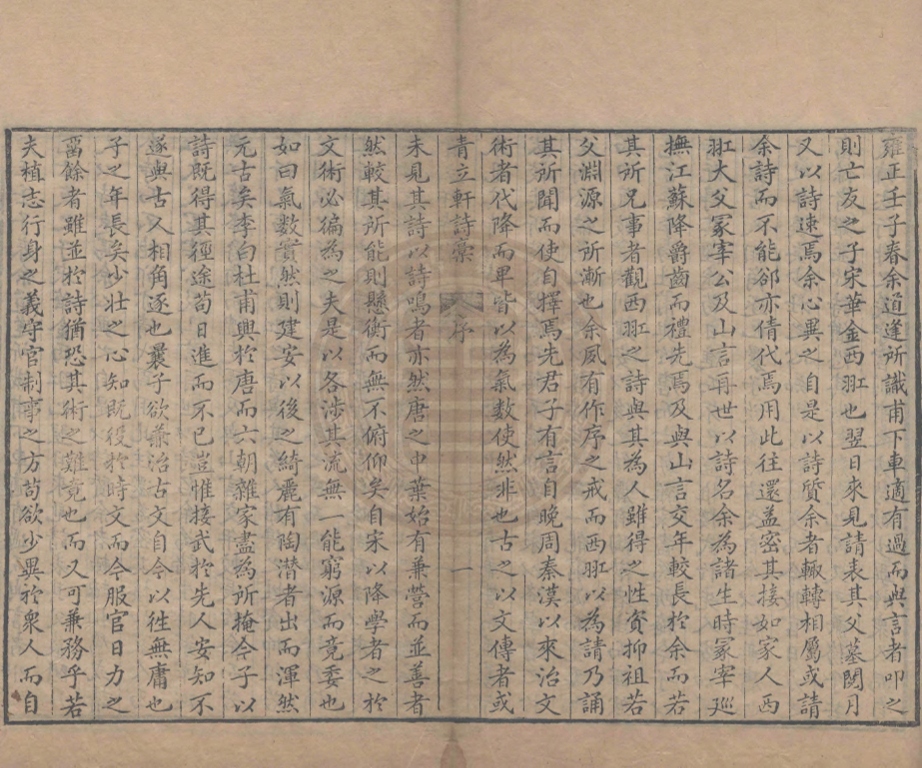 雍正壬子春余道逢所識甫下車適有過而與言者叩之
則亡友之子宋華金西羾也翌日來見請表其父墓閱月
又以詩速焉余心異之自是以詩質余者輙轉相屬或請
余詩而不能郤亦倩代焉用此往還益密其接如家人西
羾大父冢宰公及山言再世以詩名余為諸生時冢宰廵
撫江蘇降爵齒而禮先焉及與山言交年較長於余而若
其所兄事者觀西羾之詩與其為人雖得之性資抑祖若
父淵源之所漸也余夙有作序之戒而西羾以為請乃誦
其所聞而使自擇焉先君子有言自晚周秦漢以來治文
術者代降而卑皆以為氣數使然非也古之以文傳者或
青立軒詩稾 序 一
未見其詩以詩鳴者亦然唐之中葉始有兼營而並善者
然較其所能則懸衡而無不俯仰矣自宋以降學者之於
文術必徧為之夫是以各涉其流無一能窮源而竟委也
如曰氣數實然則建安以後之綺麗有陶潜者出而渾然
元古矣李白杜甫興於唐而六朝雜家盡為所掩今子以
詩既得其徑途苟日進而不已豈惟接武於先人安知不
遂與古人相角逐也曩子欲兼治古文自今以徃無庸也
子之年長矣少壯之心知既役於時文而今服官日力之
畱餘者雖並於詩猶恐其術之難竟也而又可兼務乎若
夫植志行身之義守官制事之方苟欲少異於衆人而自